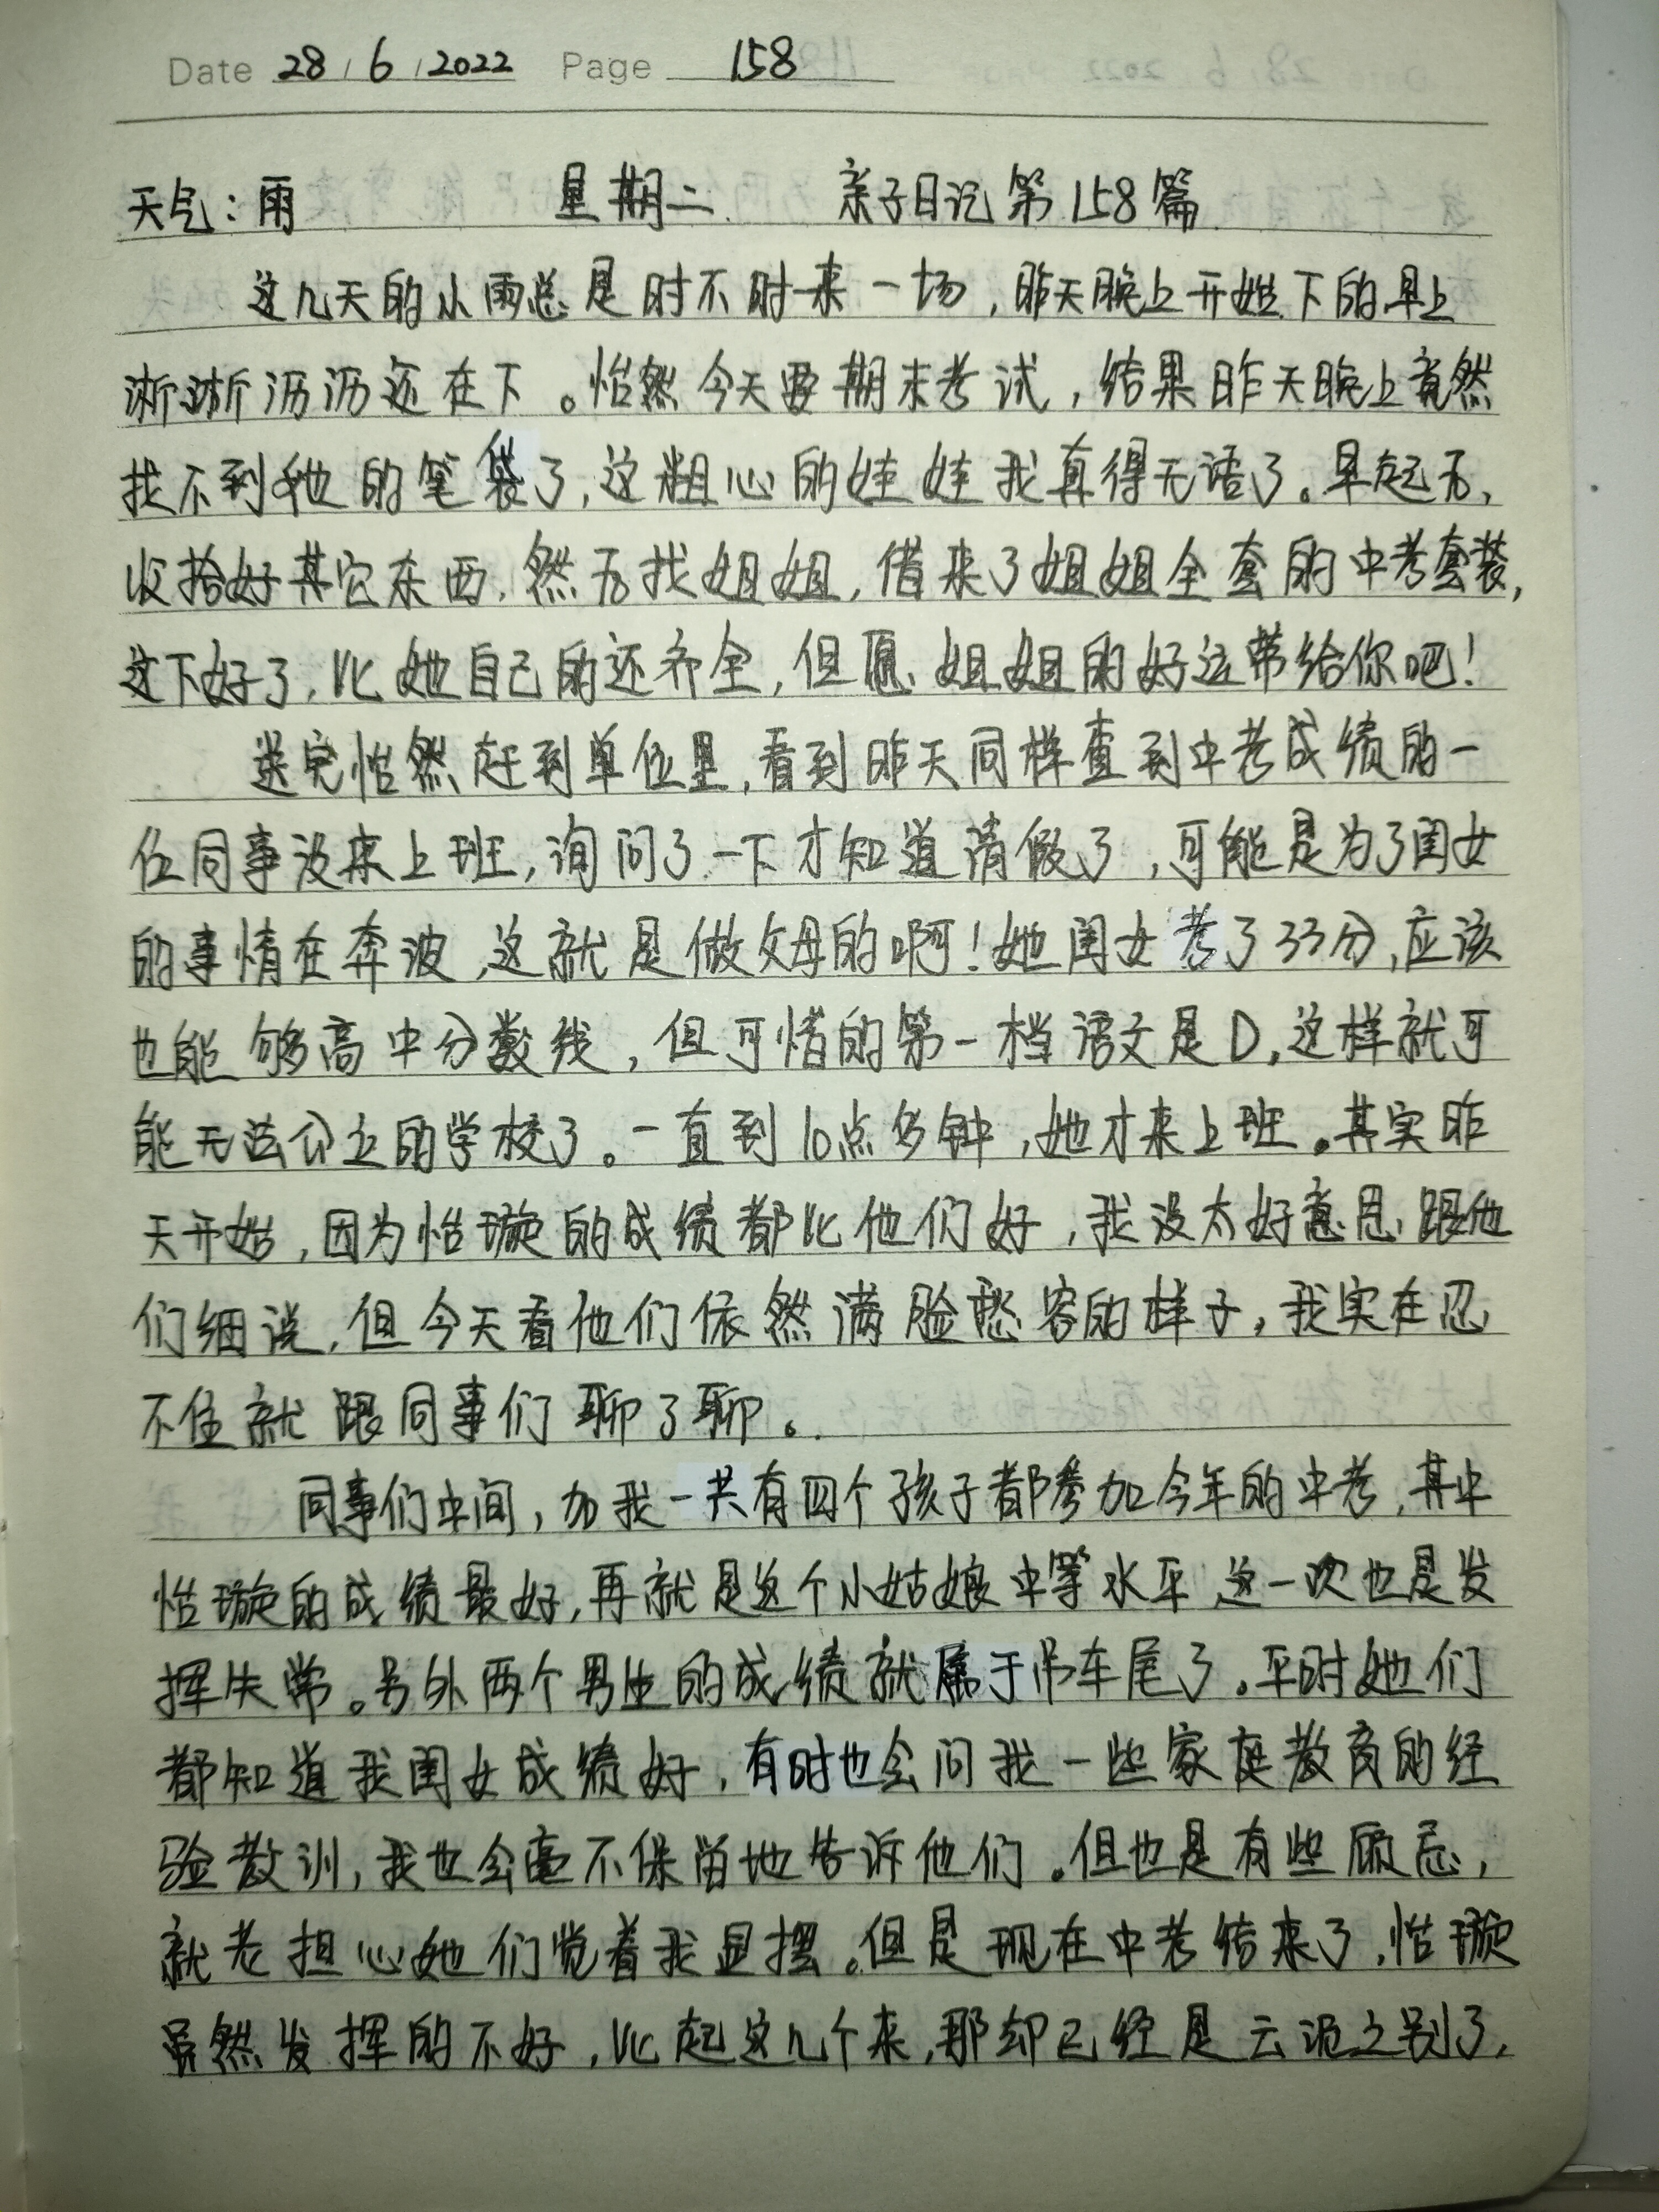 Date 28 / 6 / 2022 Page 158
天气：雨 星期二 亲子日记第158篇
这几天的小雨总是时不时来一场，昨天晚上开始下的早上
淅淅沥沥还在下。怡然今天要期末考试，结果昨天晚上竟然
找不到她的笔袋了，这粗心的娃娃我真得无语了。早起后，
收拾好其它东西，然后找姐姐，借来了姐姐全套的中考套装，
这下好了，比她自己的还齐全，但愿姐姐的好运带给你吧！
送完怡然赶到单位里，看到昨天同样查到中考成绩的一
位同事没来上班，询问了一下才知道请假了，可能是为了闺女
的事情在奔波，这就是做父母的啊！她闺女考了33分，应该
也能够高中分数线，但可惜的第一档语文是D，这样就可
能无法公立的学校了。一直到10点多钟，她才来上班。其实昨
天开始，因为怡璇的成绩都比他们好，我没太好意思跟他
们细说，但今天看他们依然满脸愁容的样子，我实在忍
不住就跟同事们聊了聊。
同事们中间，加我一共有四个孩子都参加今年的中考，其中
怡璇的成绩最好，再就是这个小姑娘中等水平，这一次也是发
挥失常。另外两个男生的成绩就属于吊车尾了。平时她们
都知道我闺女成绩好，有时也会问我一些家庭教育的经
验教训，我也会毫不保留地告诉他们。但也是有些顾忌，
就老担心她们觉着我显摆。但是现在中考结来了，怡璇
虽然发挥的不好，比起这几个来，那却已经是云泥之别了，